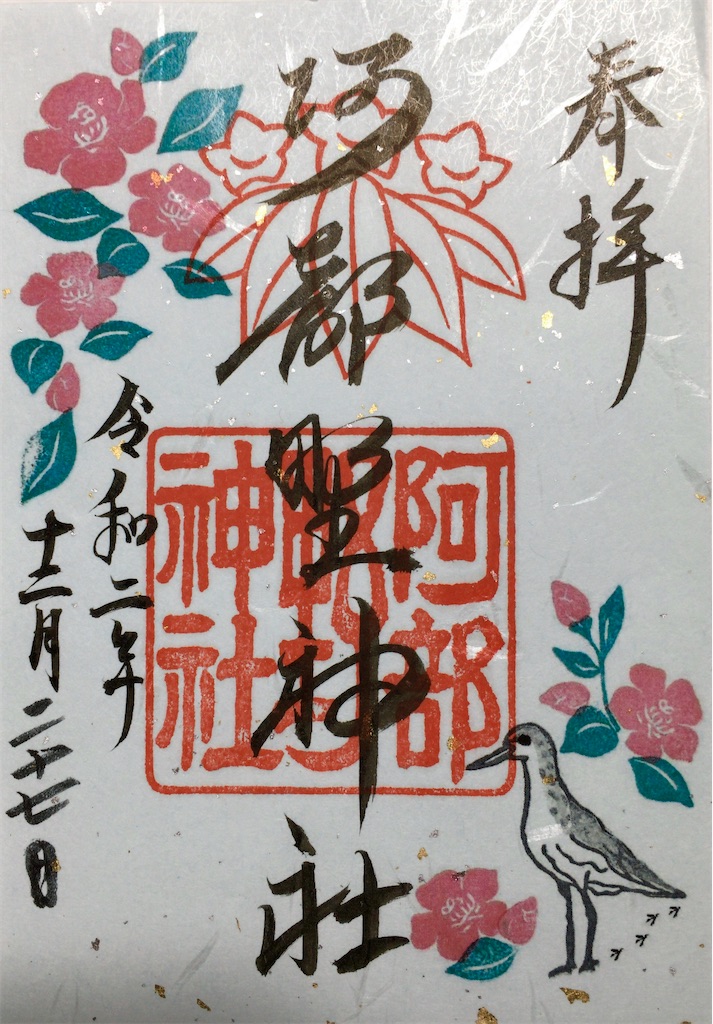 奉拝
阿部野神社
阿部
神社
令和二年
十二月二十七日